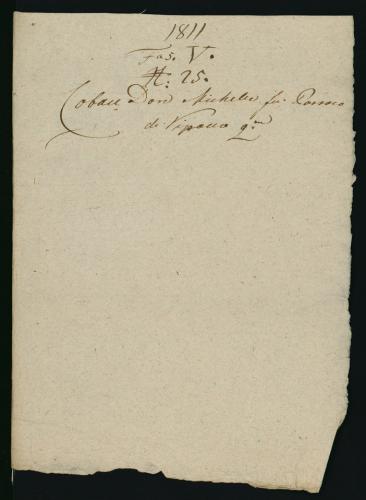 1811
Fas. V.
N: 25.
Don Michele fu
di Vipacco q.m